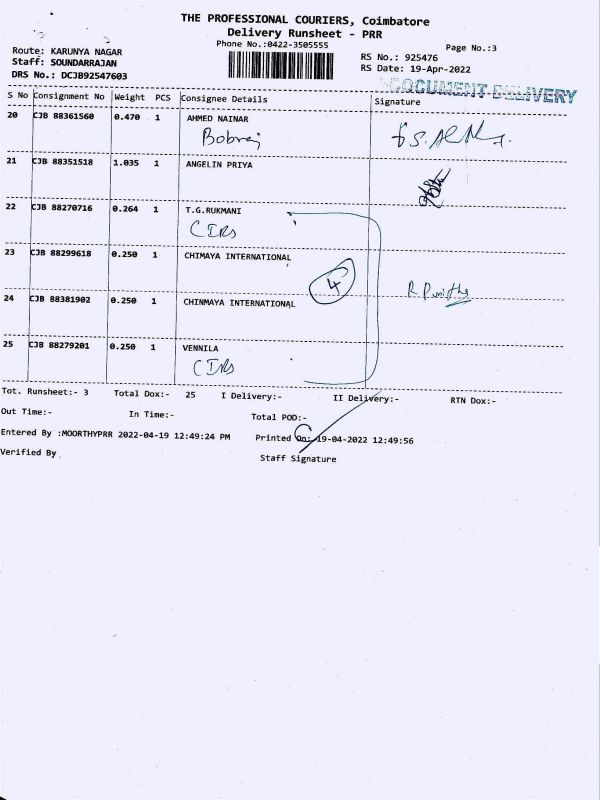 THE PROFESSIONAL COURIERS, Coimbatore
Delivery Runsheet - PRR
Phone No.:0422-3505555
Page No.:3
Route: KARUNYA NAGAR
RS No.: 925476
Staff: SOUNDARRAJAN
RS Date: 19-Apr-2022
DRS No.: DCJB92547603
DOCUMENT DELIVERY
S No Consignment No Weight PCS Consignee Details Signature
20 CJB 88361560 0.470 1 AHMED NAINAR
Bobraj
21 CJB 88351518 1.035 1 ANGELIN PRIYA
22 CJB 88270716 0.264 1 T.G.RUKMANI
CIRs
23 CJB 88299618 0.250 1 CHIMAYA INTERNATIONAL
4
24 CJB 88381902 0.250 1 CHINMAYA INTERNATIONAL
25 CJB 88279201 0.250 1 VENNILA
CIRs
Tot. Runsheet:- 3 Total Dox:- 25 I Delivery:- II Delivery:- RTN Dox:-
Out Time:- In Time:- Total POD:-
Entered By :MOORTHYPRR 2022-04-19 12:49:24 PM Printed On: 19-04-2022 12:49:56
Verified By
Staff Signature